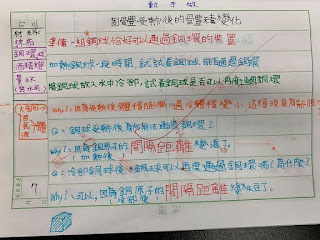 動手做
固體受熱後的體積變化
材料
準備一組銅球恰好可以通過銅環的裝置
抹布
銅環
加熱銅球一段時間,試試看銅球能通過銅環
酒精燈
量杯
將銅球放入水中冷卻,試試看銅球是否可以再度通過銅環
Why?=因為受熱後體積膨脹,遇冷體積變小,這種現象為
Q=銅球受熱後為何無法通過銅環?
Why?=因為銅原子的間隔距離變遠了。
(加熱後)
Q=冷卻銅球後,銅球可以再度通過銅環嗎?為什麼?
Why?=可以,因為銅原子的間隔距離縮短了。
(冷卻後)
7